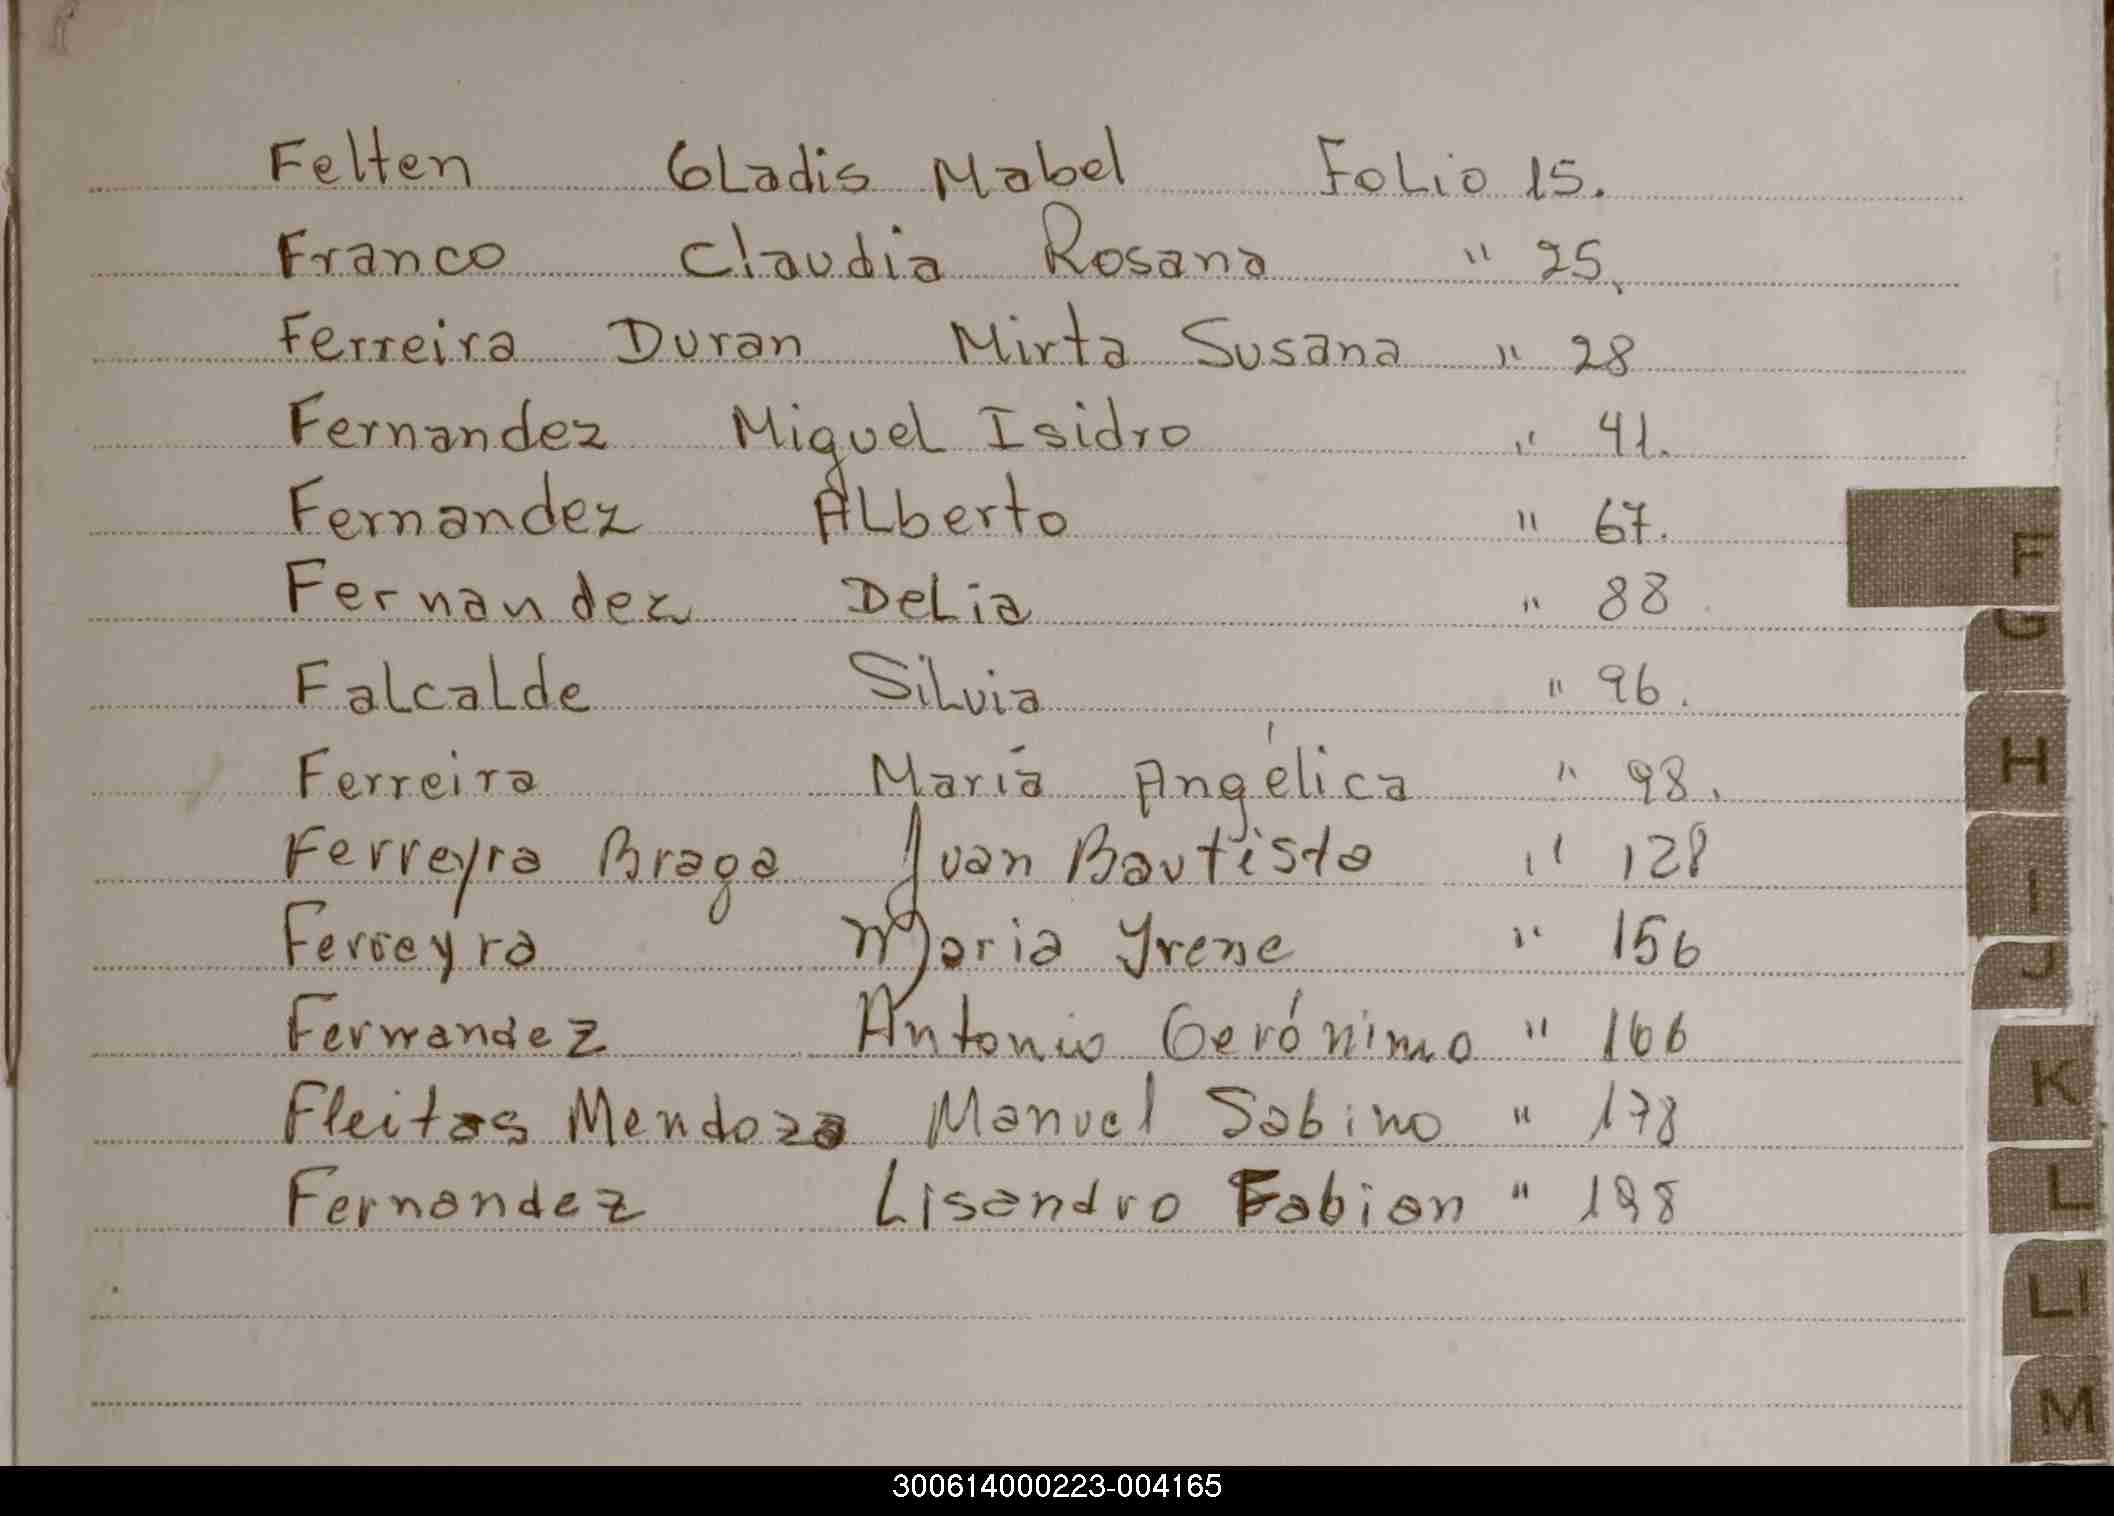 Felten Gladis Mabel Folio 15.
Franco Claudia Rosana " 25.
Ferreira Duran Mirta Susana " 28
Fernandez Miguel Isidro " 41.
Fernandez Alberto " 67.
Fernandez Delia " 88
Falcalde Silvia " 96.
Ferreira María Angélica " 98.
Ferreyra Braga Juan Bautista " 128
Ferreyra Maria Yrene " 156
Fernandez Antonio Gerónimo " 166
Fleitas Mendoza Manuel Sabino " 178
Fernandez Lisandro Fabian " 198
F
G
H
I
J
K
L
Ll
M
300614000223-004165